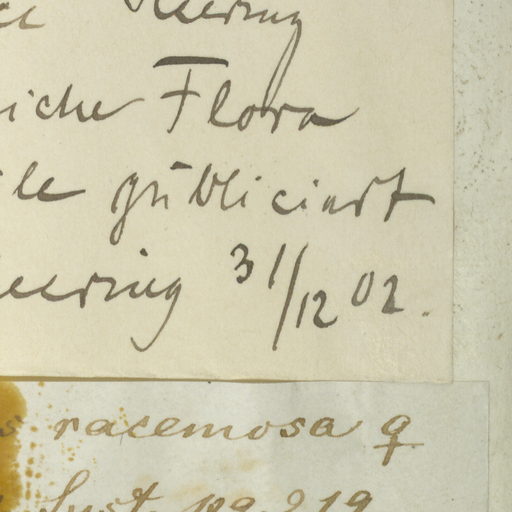 Heering
iche Flora
le publiciert
Heering 31/12 02.
s racemosa ♀
Syst. pg. 219